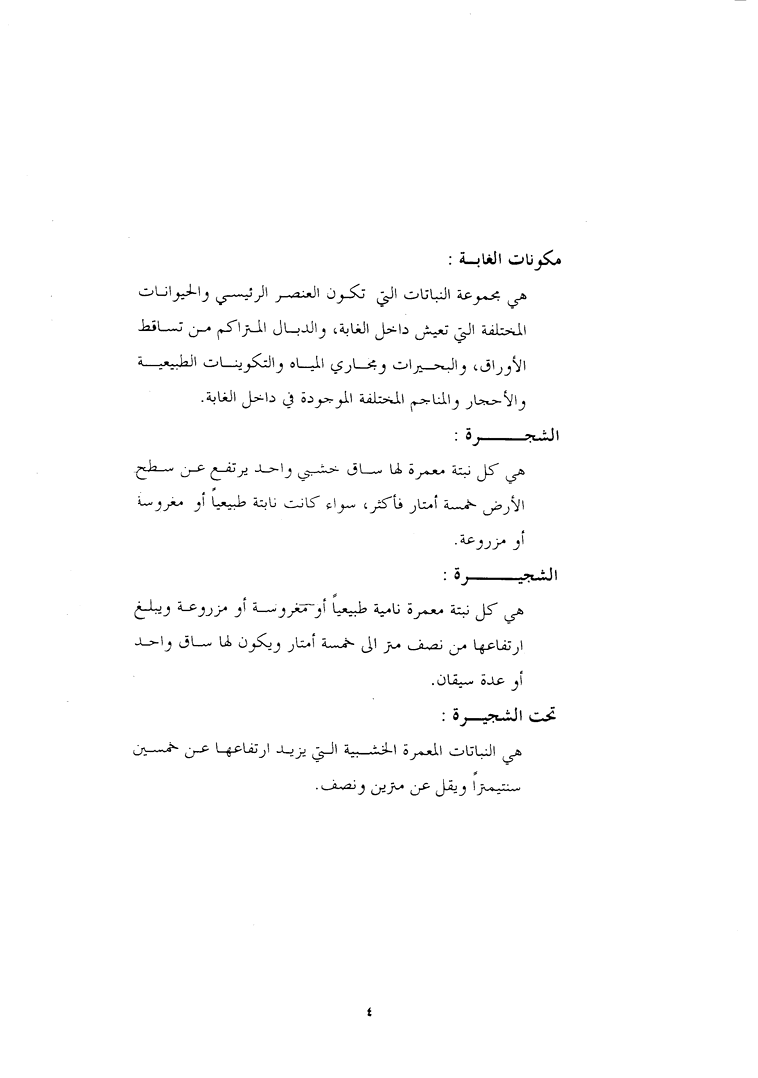 مكونات الغابة :
هي مجموعة النباتات التي تكون العنصر الرئيسي والحيوانات
المختلفة التي تعيش داخل الغابة، والدبال المتراكم من تساقط
الأوراق، والبحيرات ومجاري المياه والتكوينات الطبيعية
والأحجار والمناجم المختلفة الموجودة في داخل الغابة.
الشجرة :
هي كل نبتة معمرة لها ساق خشبي واحد يرتفع عن سطح
الأرض خمسة أمتار فأكثر، سواء كانت نابتة طبيعياً أو مغروسة
أو مزروعة.
الشجيرة :
هي كل نبتة معمرة نامية طبيعياً أو مغروسة أو مزروعة ويبلغ
ارتفاعها من نصف متر الى خمسة أمتار ويكون لها ساق واحد
أو عدة سيقان.
تحت الشجيرة :
هي النباتات المعمرة الخشبية التي يزيد ارتفاعها عن خمسين
سنتيمتراً ويقل عن مترين ونصف.
٤